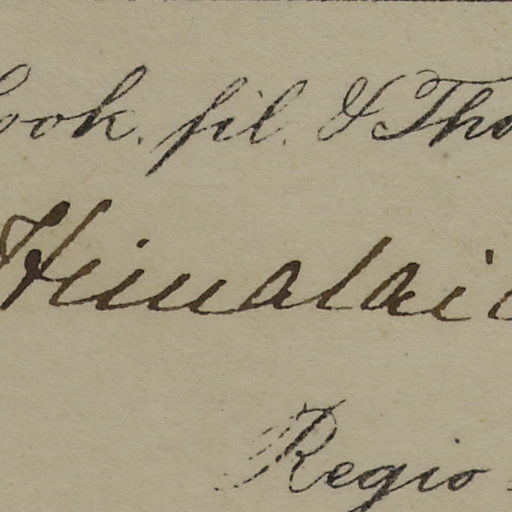 ook. fil. & Tho
Himalai
Regio